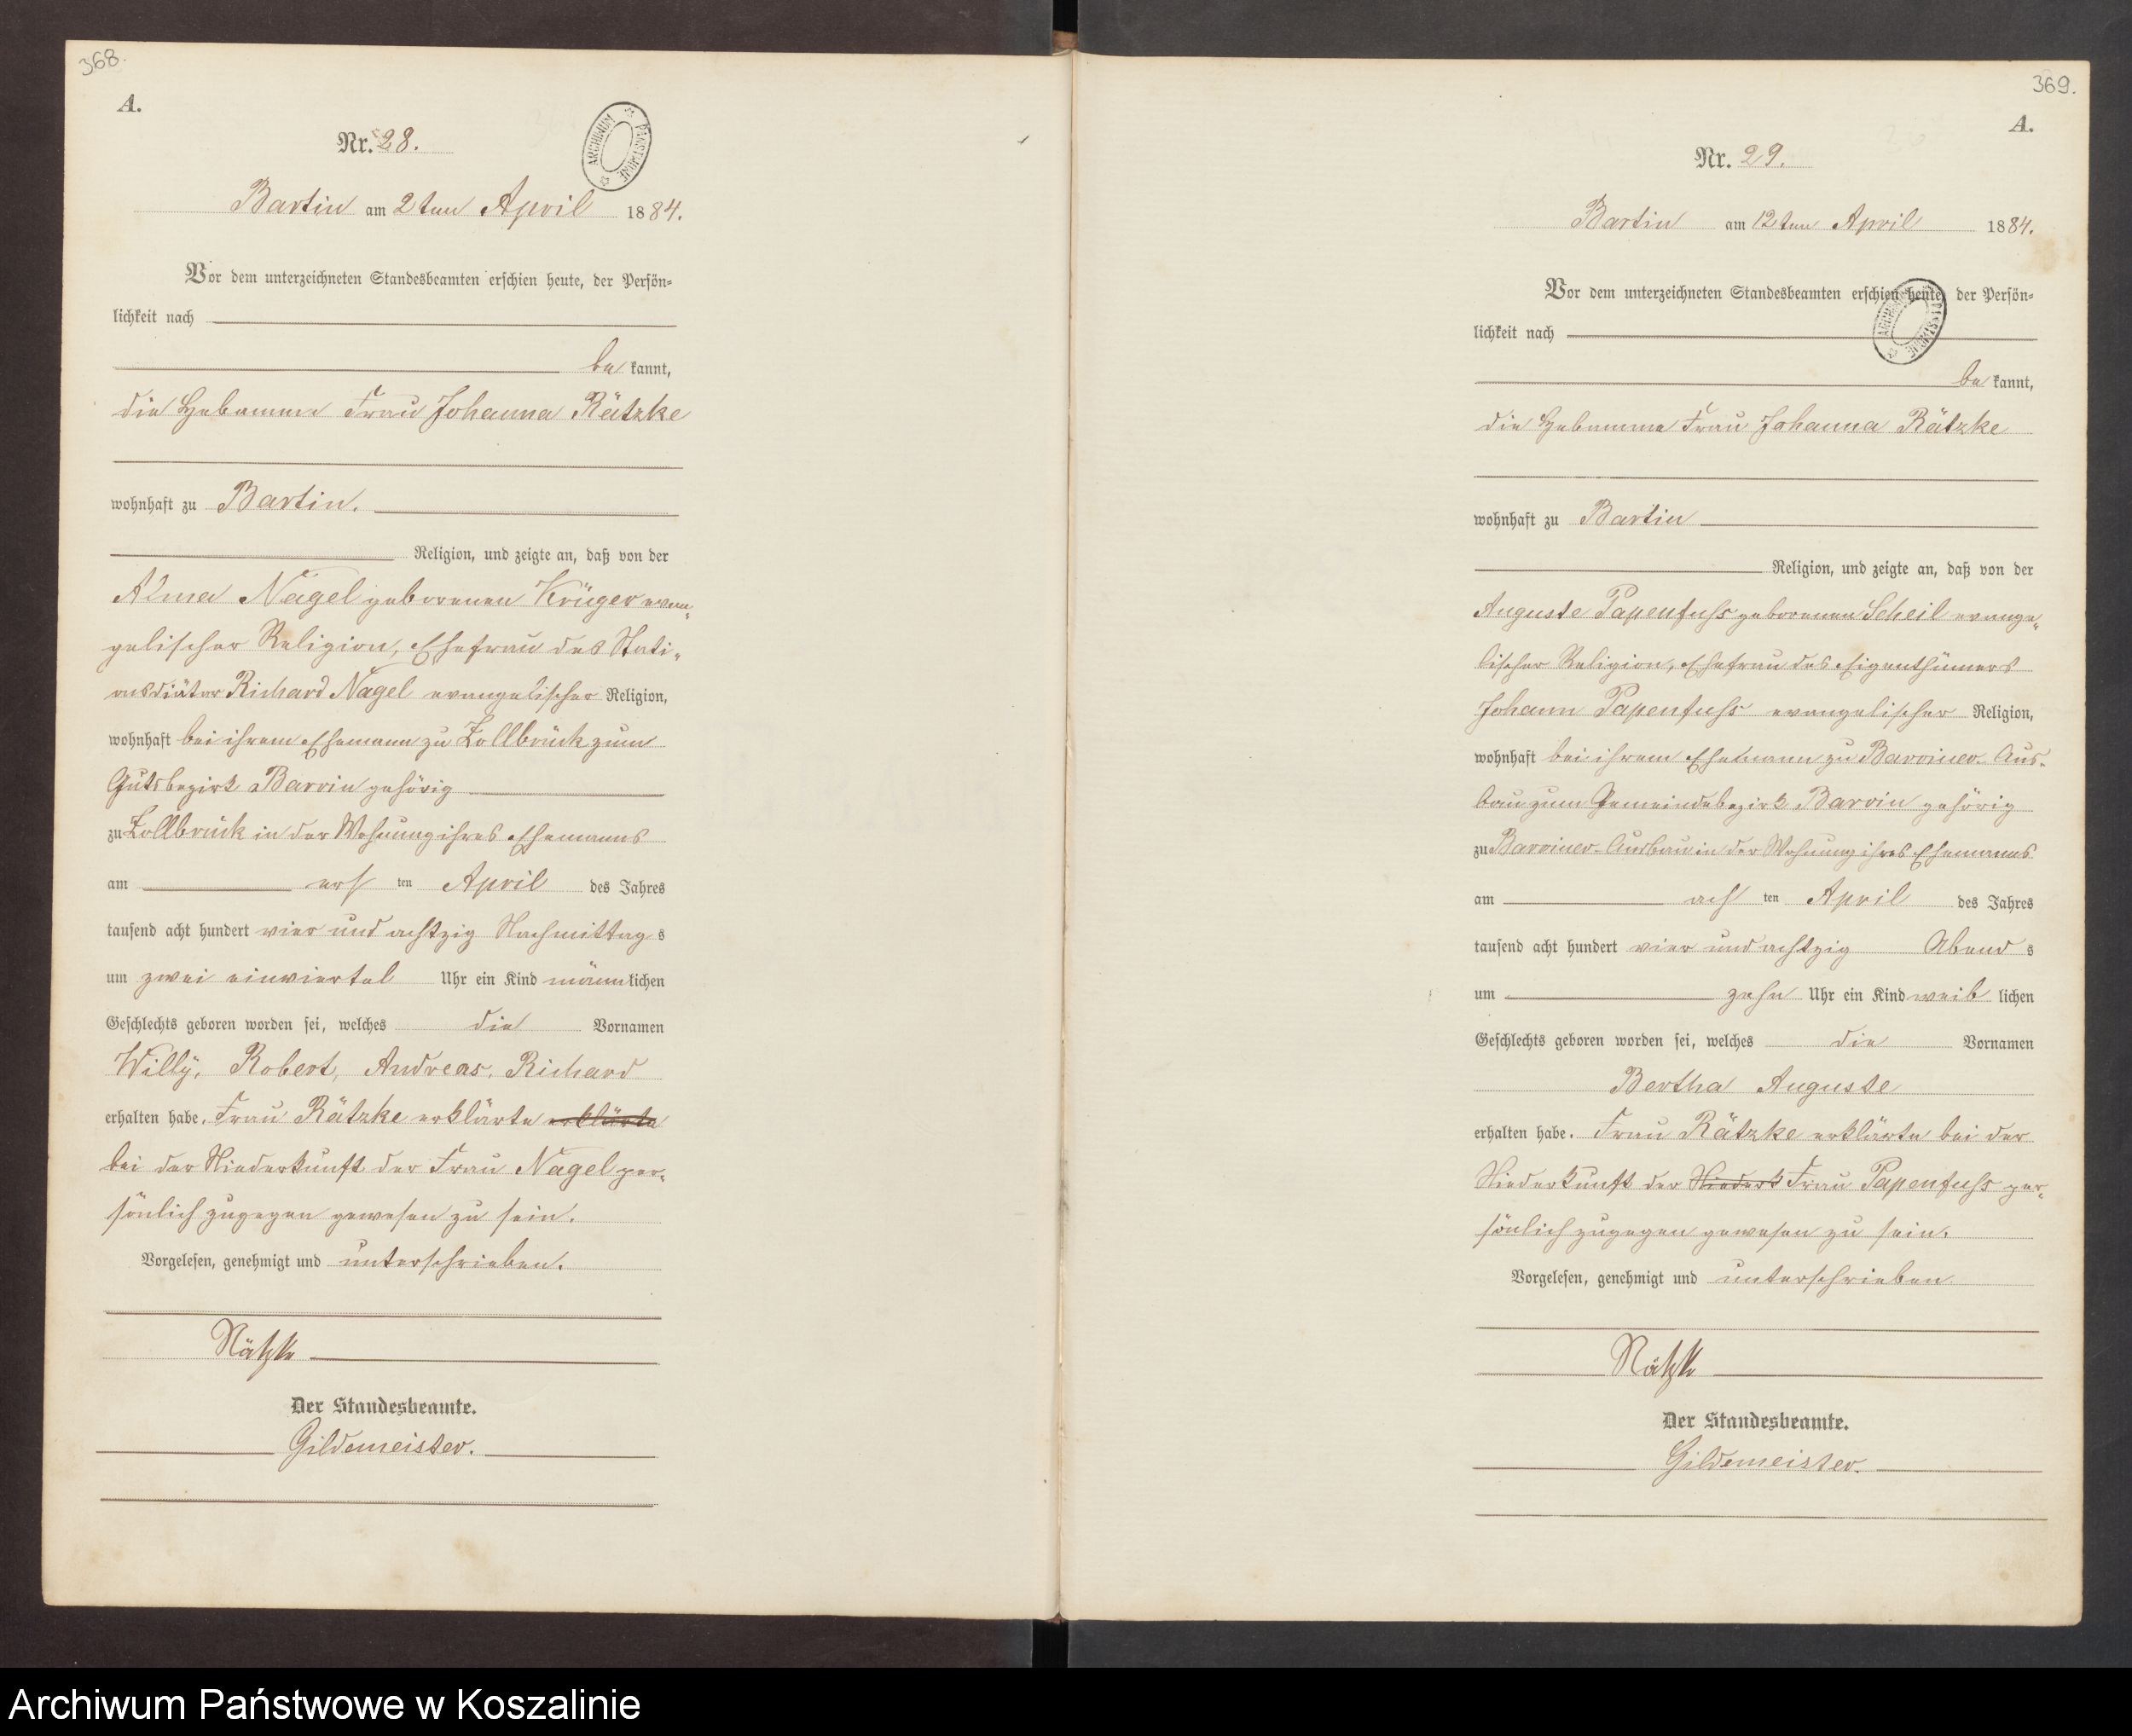 368.
A.
Nr. 28.
ARCHIWUM PAŃSTWOWE
Bartin am 2ten April 1884.
Vor dem unterzeichneten Standesbeamten erschien heute, der Persön-
lichkeit nach
be kannt,
die Hebamme Frau Johanna Rätzke
wohnhaft zu Bartin.
Religion, und zeigte an, daß von der
Alma Nagel geborenen Krüger evan-
gelischer Religion, Ehefrau des Stati-
onsdiätar Richard Nagel evangelischer Religion,
wohnhaft bei ihrem Ehemann zu Zollbrück zum
Gutsbezirk Barvin gehörig
zu Zollbrück in der Wohnung ihres Ehemanns
am ers ten April des Jahres
tausend acht hundert vier und achtzig Nachmittag s
um zwei einviertel Uhr ein Kind männlichen
Geschlechts geboren worden sei, welches die Vornamen
Willy, Robert, Andreas, Richard
erhalten habe. Frau Rätzke erklärte erklärte
bei der Niederkunft der Frau Nagel per-
sönlich zugegen gewesen zu sein.
Vorgelesen, genehmigt und unterschrieben.
Rätzke
Der Standesbeamte.
Gildemeister.
369.
A.
Nr. 29.
Bartin am 12ten April 1884.
Vor dem unterzeichneten Standesbeamten erschien heute, der Persön-
ARCHIWUM PAŃSTWOWE
lichkeit nach
be kannt,
die Hebamme Frau Johanna Rätzke
wohnhaft zu Bartin
Religion, und zeigte an, daß von der
Auguste Papenfuhs geborenen Scheil evange-
lischer Religion, Ehefrau des Eigenthümers
Johann Papenfuhs evangelischer Religion,
wohnhaft bei ihrem Ehemann zu Barviner-Aus-
bau zum Gemeindebezirk Barvin gehörig
zu Barviner-Ausbau in der Wohnung ihres Ehemanns
am ach ten April des Jahres
tausend acht hundert vier und achtzig Abend s
um zehn Uhr ein Kind weib lichen
Geschlechts geboren worden sei, welches die Vornamen
Bertha Auguste
erhalten habe. Frau Rätzke erklärte bei der
Niederkunft der Niederk Frau Papenfuhs per-
sönlich zugegen gewesen zu sein.
Vorgelesen, genehmigt und unterschrieben
Rätzke
Der Standesbeamte.
Gildemeister.
Archiwum Państwowe w Koszalinie